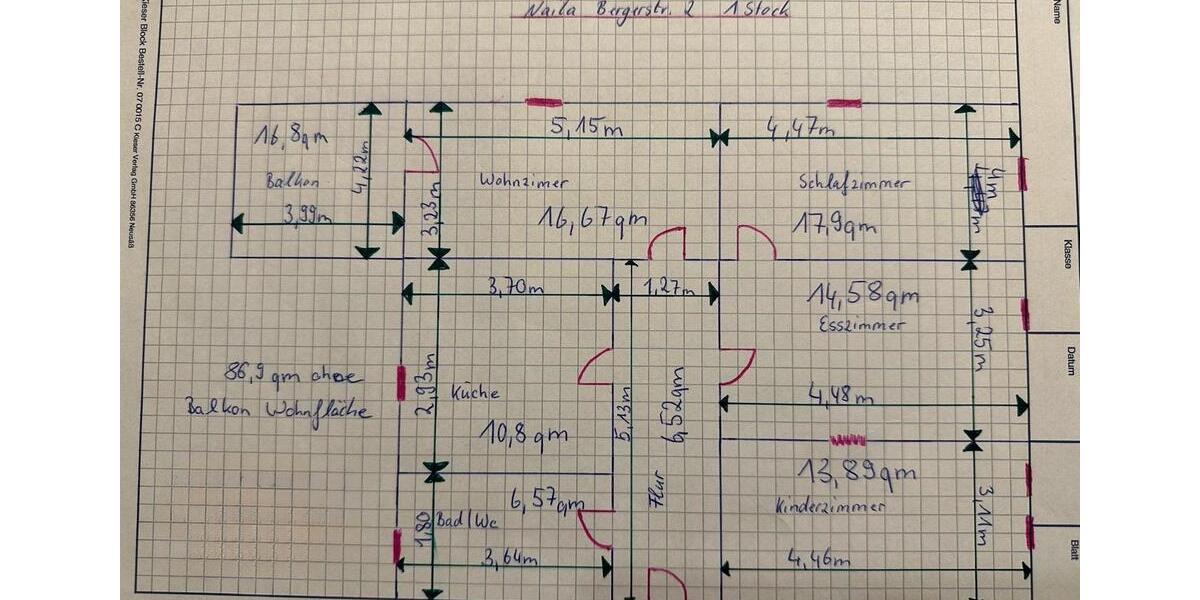 Naila Bergerstr. 2 1 Stock
Name
Klasse
Datum
Blatt
Kieser Block Bestell-Nr. 070015 © Kieser Verlag GmbH 86356 Neusäß
16,8qm
Balkon
3,99m
4,22m
5,15m
3,23m
Wohnzimer
16,67qm
4,47m
4m
Schlafzimmer
17,9qm
3,70m
1,27m
14,58qm
Esszimmer
3,25m
4,48m
86,9 qm ohne
Balkon Wohnfläche
2,93m
Küche
10,8qm
5,13m
6,52qm
Flur
13,89qm
Kinderzimmer
3,11m
4,46m
6,57qm
Bad/Wc
1,80
3,64m